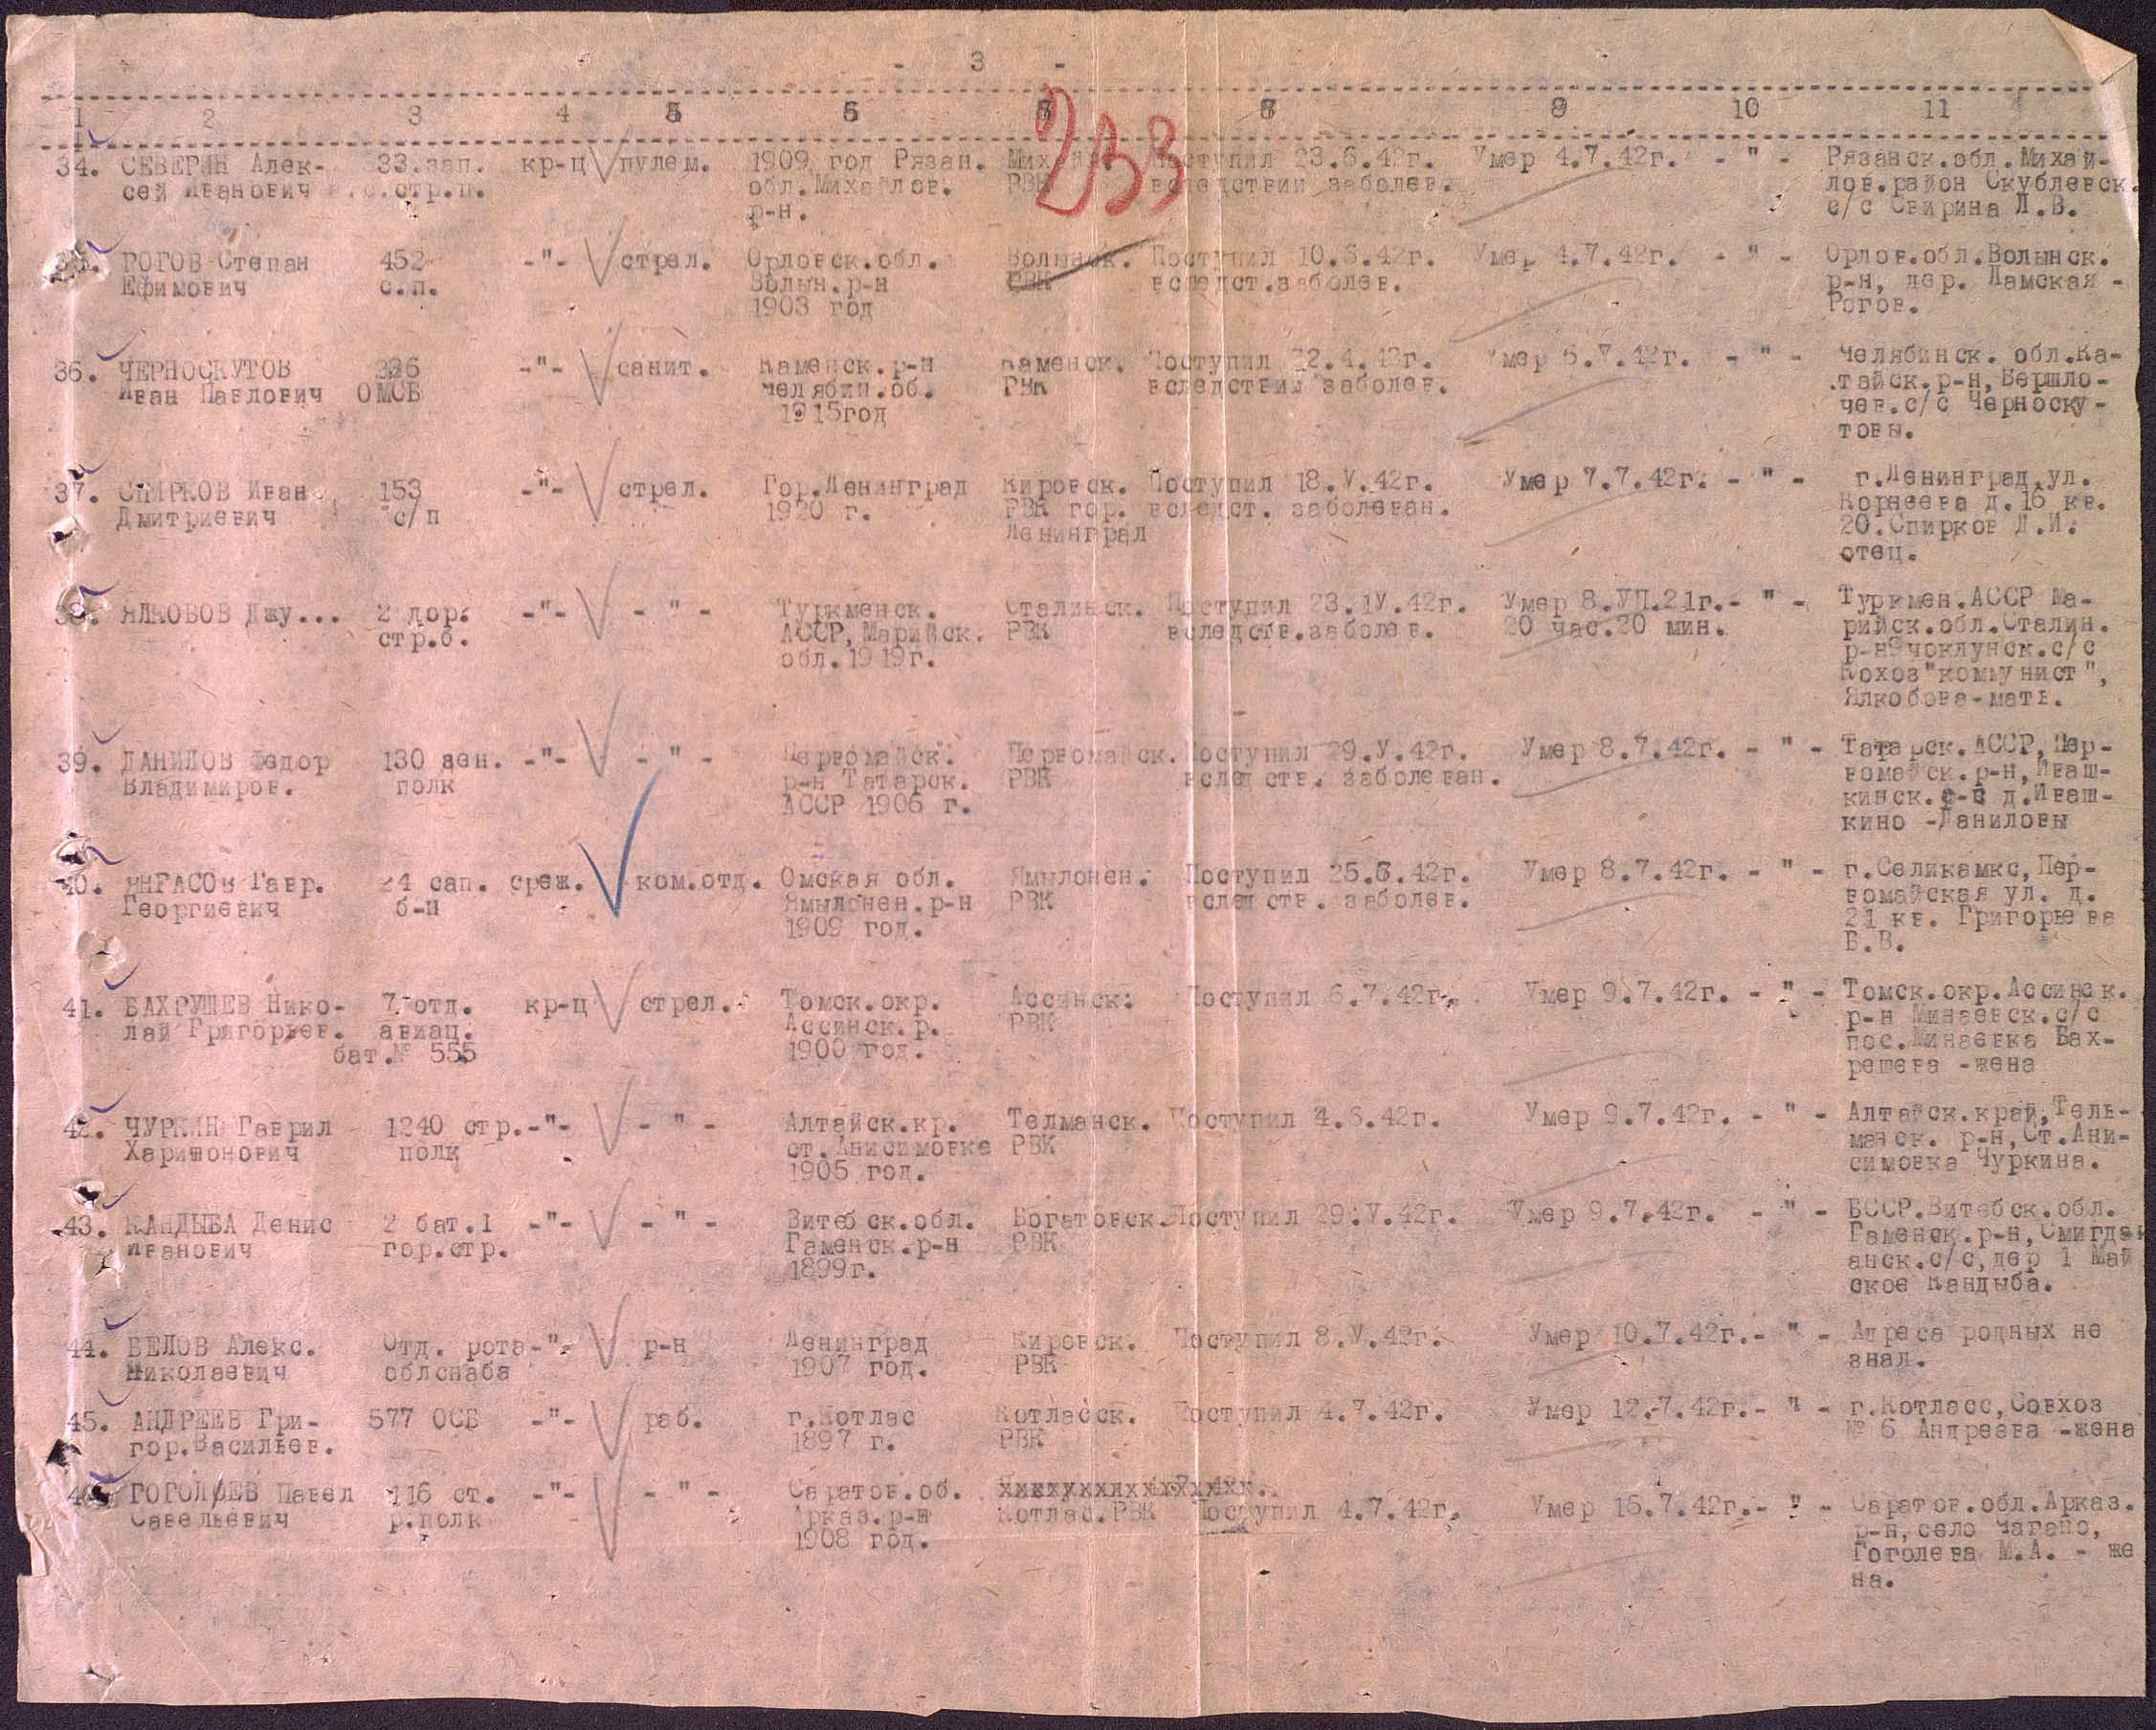 - 3 -
1 2 3 4 5 6 7 8 9 10 11
233
34. СЕВЕРИН Алек- 33.зап. кр-ц пулем. 1909 год Рязан. Поступил 23.6.42г. Умер 4.7.42г. - " - Рязанск.обл.Михай-
сей Иванович с.стр.п. обл.Михайлов. РВК вследствии заболев. лов.район Скублевск.
р-н. с/с Свирина Л.В.
35. РОГОВ Степан 452 -"- стрел. Орловск.обл. Волынск. Поступил 10.6.42г. Умер 4.7.42г. - " - Орлов.обл.Волынск.
Ефимович с.п. Волын.р-н РВК вследст.заболев. р-н, дер. Ламская -
1903 год Рогов.
36. ЧЕРНОСКУТОВ -"- санит. Каменск.р-н Каменск. Поступил Умер 5.7.42г. - " - Челябинск. обл.Ка-
Иван Павлович ОМСБ челябин.об. РВК вследствии заболев. тайск.р-н, Вершло-
1915год чев.с/с Черноску-
товы.
37. СПИРКОВ Иван 153 -"- стрел. Гор.Ленинград Кировск. Поступил 18.V.42г. Умер 7.7.42г. - " - г.Ленинград,ул.
Дмитриевич с/п 1920 г. РВК гор. вследст. заболеван. Корнеева д.16 кв.
Ленинграл 20.Спирков Д.И.
отец.
38. ЯЛКОБОВ Джу... 2 дор. -"- - " - Туркменск. Сталинск. Поступил 23.1У.42г. Умер 8.УП.21г.- " - Туркмен.АССР Ма-
стр.б. АССР,Марийск. РВК вследств.заболев. 20 час.20 мин. рийск.обл.Сталин.
обл.1919г. с/с
Кохоз"коммунист",
Ялкобова-мать.
39. ДАНИЛОВ Федор 130 зен. -"- - " - Первомайск. Первомайск. Поступил 29.V.42г. Умер 8.7.42г. - " - Татарск.АССР,Пер-
Владимиров. полк р-н Татарск. РВК вследств. заболеван. вомайск.р-н,Иваш-
АССР 1906 г. кинск.с-в д.Иваш-
кино -Даниловы
40. ЯНГАСОв Гавр. 24 сап. среж. ком.отд. Омская обл. Ямылонен. Поступил 25.6.42г. Умер 8.7.42г. - " - г.Селикамкс,Пер-
Георгиевич б-н Ямылонен.р-н РВК вследств. заболев. вомайская ул. д.
1909 год. 21 кв. Григорьева
Е.В.
41. БАХРУШЕВ Нико- 7 отд. кр-ц стрел. Томск.окр. Ассинск. Поступил 6.7.42г. Умер 9.7.42г. - " - Томск.окр.Ассинск.
лай Григорьев. авиац. Ассинск.р. РВК р-н Минаевск.с/с
бат.№ 555 1900 год. пос.Минаевка Бах-
решева -жена
42. ЧУРКИН Гаврил 1240 стр.-"- - " - Алтайск.кр. Телманск. Поступил 4.6.42г. Умер 9.7.42г. - " - Алтайск.край,Тель-
Харитонович полк ст.Анисимовке РВК манск. р-н,Ст.Ани-
1905 год. симовка Чуркина.
43. КАНДЫБА Денис 2 бат.1 -"- - " - Витебск.обл. Богатовск. Поступил 29.V.42г. Умер 9.7.42г. - " - БССР.Витебск.обл.
Иванович гор.стр. Гаменск.р-н РВК Гаменск.р-н,
1899г. анск.с/с,дер 1 Май
ское Кандыба.
44. БЕЛОВ Алекс. Отд. рота-"- р-н Ленинград Кировск. Поступил 8.V.42г. Умер 10.7.42г.- " - Адреса родных не
Николаевич облснаба 1907 год. РВК знал.
45. АНДРЕЕВ Гри- 577 ОСБ -"- раб. г.Котлас Котласск. Поступил 4.7.42г. Умер 12.7.42г.- " - г.Котласс,Совхоз
гор.Васильев. 1897 г. РВК № 6 Андреева -жена
46. ГОГОЛЕВ Павел 116 ст. -"- - " - Саратов.об.
Савельевич р.полк Арказ.р-н Котлас.РВК Поступил 4.7.42г. Умер 15.7.42г.- " - Саратов.обл.Арказ.
1908 год. р-н,село Чагано,
Гоголева М.А. - же
на.